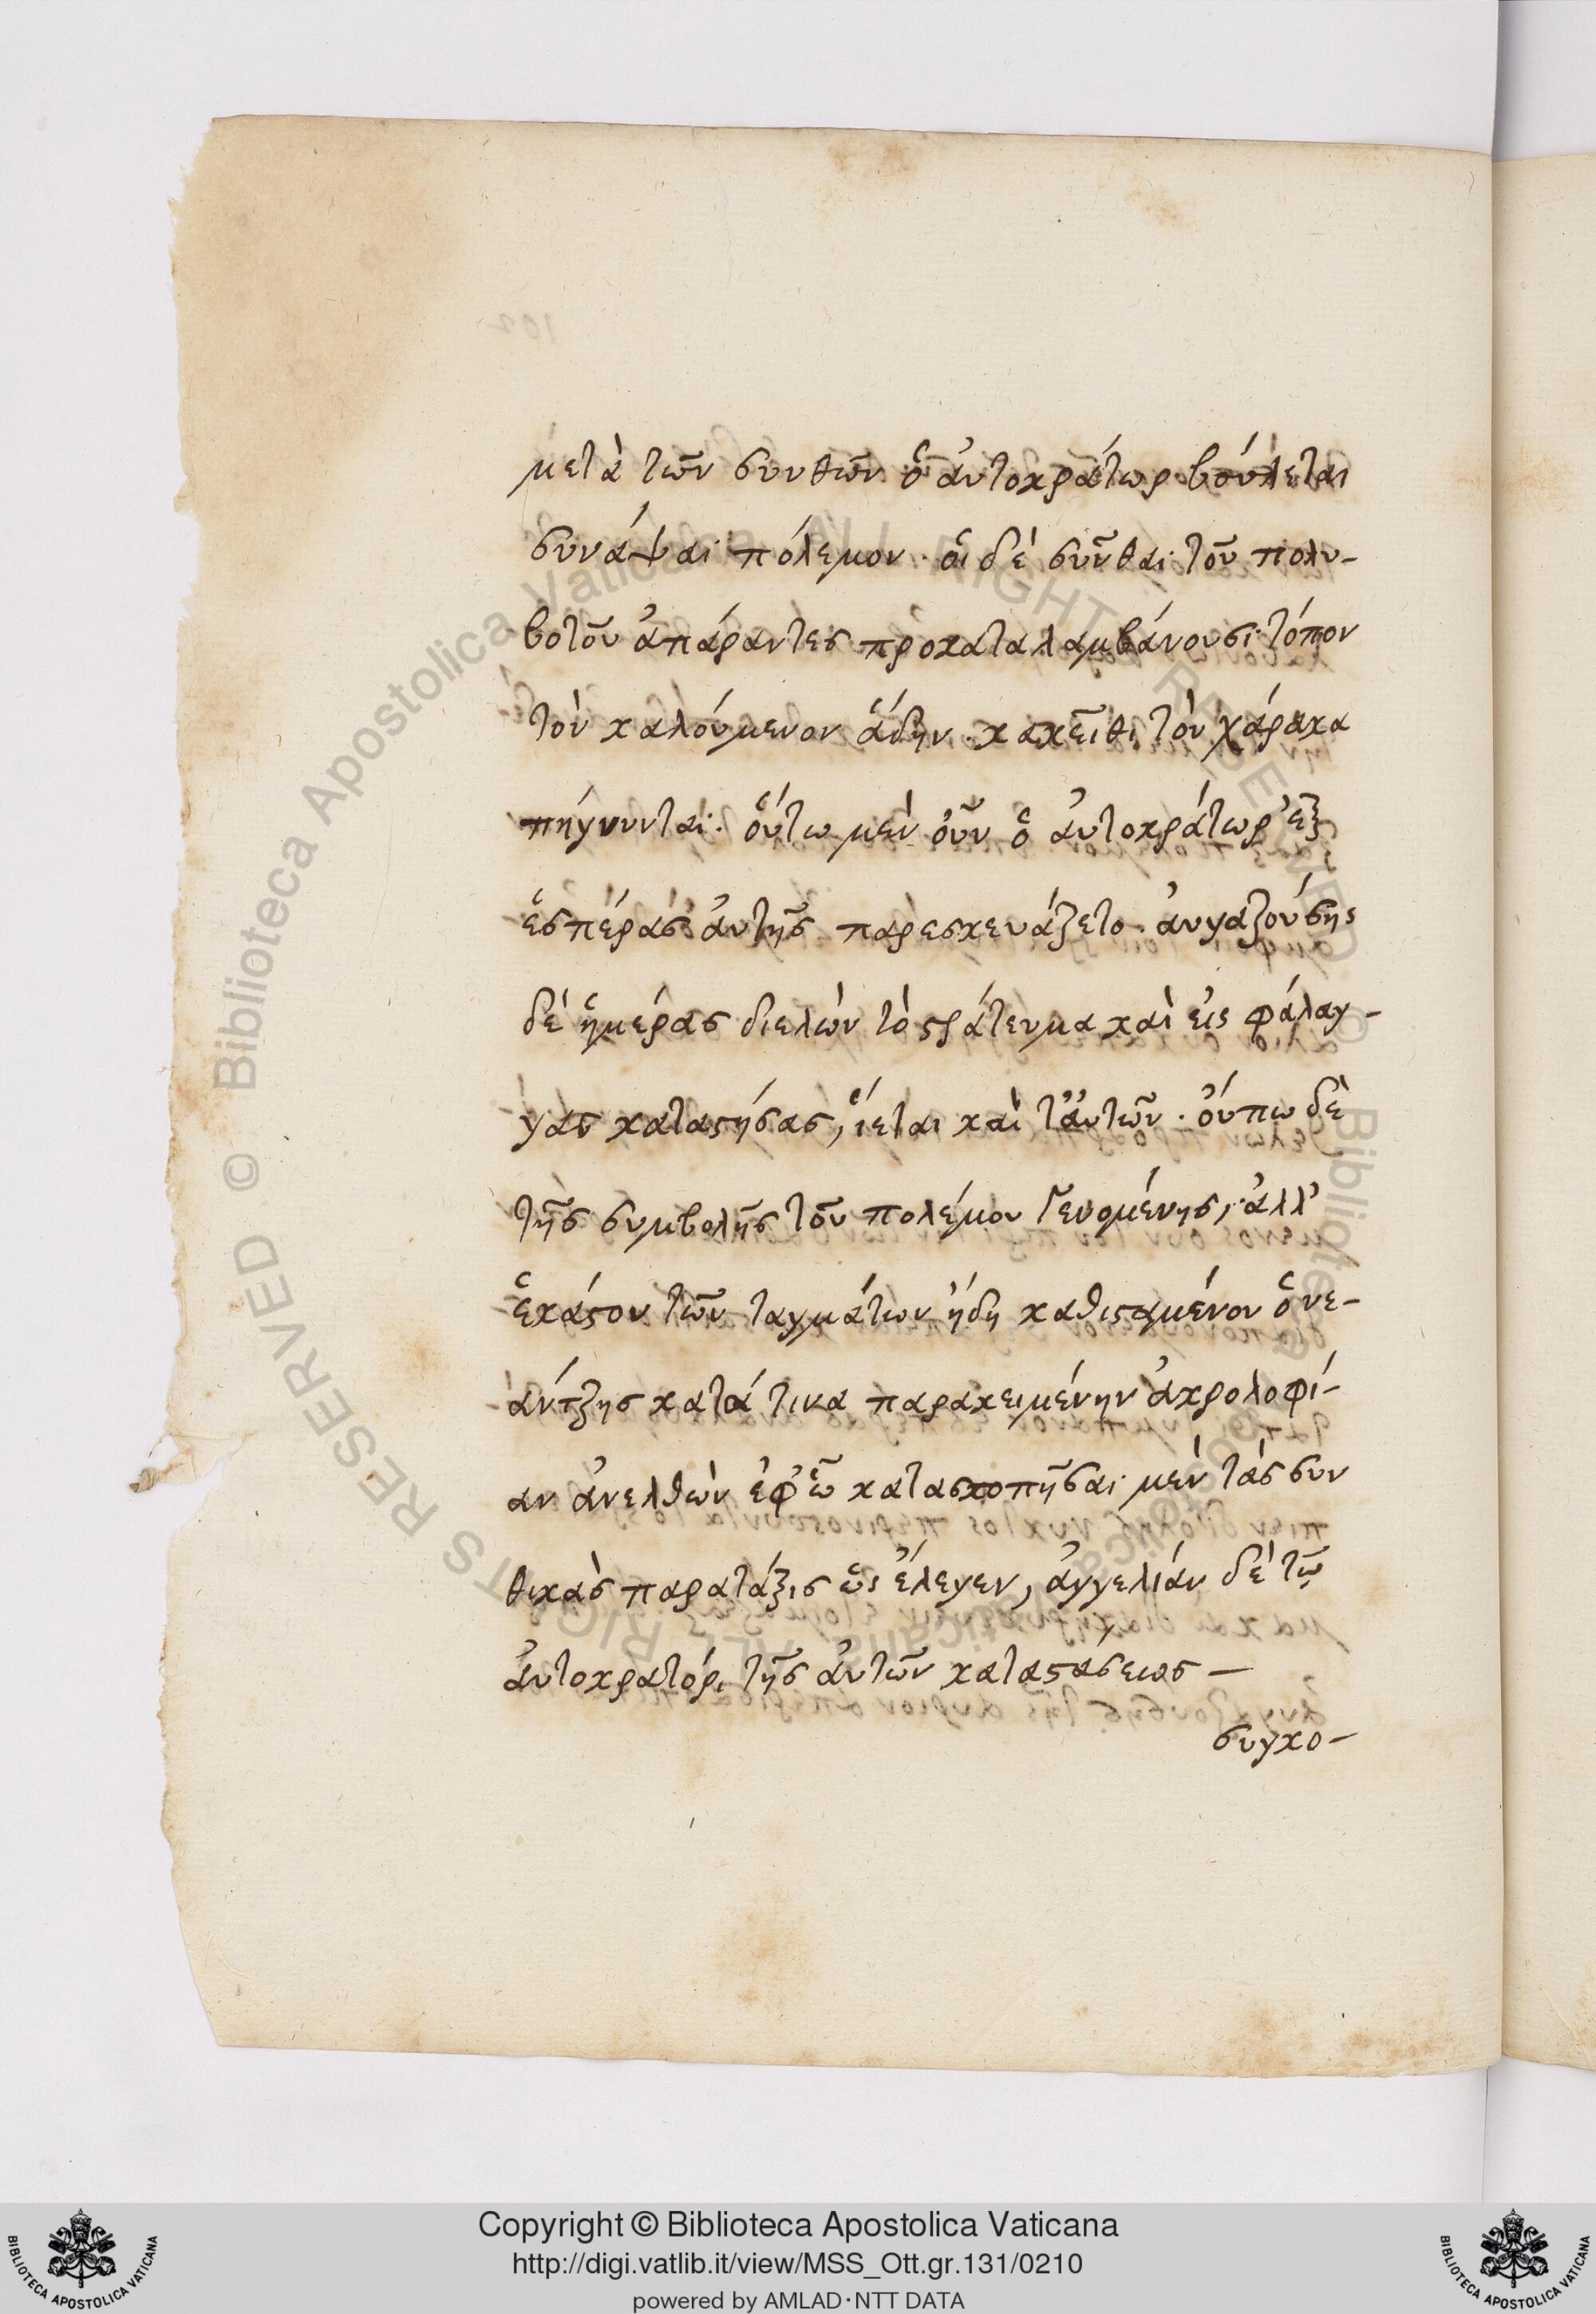 μετὰ τῶν συνθῶν ὁ ἀυτοκράτωρ βούλεται
συνάψαι πόλεμον· οἱ δὲ σῦνθαι τοῦ πολυ-
βοτοῦ ἀπάραντες προκαταλαμβάνουσι τόπον
τὸν καλούμενον ἅδην· κακεῖθι τὸν χάρακα
πήγνυνται· ὅυτω μὲν ὀῦν ὁ ἀυτοκράτωρ ἐξ
ἑσπέρας ἀυτῆς παρεσκευάζετο· ἀυγαζούσης
δὲ ἡμέρας διελὼν τὸ ϛράτευμα καὶ εἰς φάλαγ-
γας καταϛήσας, ἵεται καὶ τ᾽ ἀυτῶν· ὄυπω δὲ
τῆς συμβολῆς τοῦ πολέμου γενομένης, ἀλλ᾽
ἑκάϛου τῶν ταγμάτων ἤδη καθιϛαμένου ὁ νε-
άντζης κατά τινα παρακειμένην ἀκρολοφί-
αν ἀνελθὼν ἐφ᾽ ᾧ κατασκοπῆσαι μὲν τὰς συν
θικὰς παρατάξις ὡς ἔλεγεν, ἀγγελιάν δὲ τῷ
ἀυτοκρατόρι τῆς ἀυτῶν καταϛάσεως —
συγκο-
Copyright © Biblioteca Apostolica Vaticana
http://digi.vatlib.it/view/MSS_Ott.gr.131/0210
powered by AMLAD·NTT DATA
BIBLIOTECA APOSTOLICA VATICANA
BIBLIOTECA APOSTOLICA VATICANA